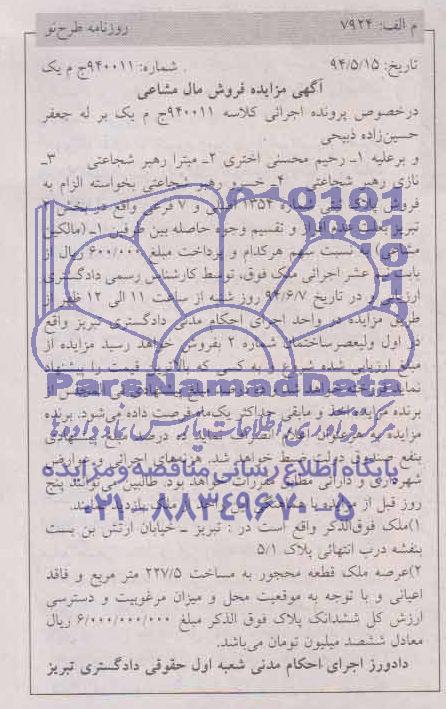 م الف: ۷۹۲۴
روزنامه طرح نو
تاریخ: ۹۴/۵/۱۵
شماره: ۹۴۰۰۱۱ج م یک
آگهی مزایده فروش مال مشاعی
درخصوص پرونده اجرائی کلاسه ۹۴۰۰۱۱ج م یک بر له جعفر
حسین‌زاده ذبیحی
و برعلیه ۱ـ رحیم محسنی اختری ۲ـ میترا رهبر شجاعتی ۳ـ
نازی رهبر شجاعتی ۴ـ رهبر شجاعتی بخواسته الزام به
فروش پلاک ثبتی ۱۳۵۴ و ۷ فرعی واقع در بخش ۲
تبریز بعلت عدم افراز و تقسیم وجوه حاصله بین طرفین ۱ـ (مالکین
مشاعی) به نسبت سهم هرکدام و پرداخت مبلغ ۶۰۰/۰۰۰ ریال از
بابت نیم عشر اجرائی ملک فوق، توسط کارشناس رسمی دادگستری
ارزیابی و در تاریخ ۹۴/۶/۷ روز شنبه از ساعت ۱۱ الی ۱۲ ظهر از
طریق مزایده در واحد اجرای احکام مدنی دادگستری تبریز واقع
در اول ولیعصرساختمان شماره ۲ بفروش خواهد رسید مزایده از
مبلغ ارزیابی شده شروع و به کسی که بالاترین قیمت را پیشنهاد
نماید فروخته خواهد شد و ده درصد مبلغ پیشنهادی فی المجلس از
برنده مزایده اخذ و مابقی حداکثر یک‌ماه فرصت داده می‌شود. برنده
مزایده به هر عنوان اعلام انصراف نماید ده درصد مبلغ پیشنهادی
بنفع صندوق دولت ضبط خواهد شد. هزینه‌های اجرائی و عوارض
شهرداری و دارائی مطابق مقررات خواهد بود. طالبین می‌توانند پنج
روز قبل از
۱)ملک فوق‌الذکر واقع است در : تبریز ـ خیابان ارتش بن بست
بنفشه درب انتهائی پلاک ۵/۱
۲)عرصه ملک قطعه محجور به مساحت ۲۲۷/۵ متر مربع و فاقد
اعیانی و با توجه به موقعیت محل و میزان مرغوبیت و دسترسی
ارزش کل ششدانک پلاک فوق الذکر مبلغ ۶/۰۰۰/۰۰۰/۰۰۰ ریال
معادل ششصد میلیون تومان می‌باشد.
دادورز اجرای احکام مدنی شعبه اول حقوقی دادگستری تبریز
ParsNamadData
مرکز فرآوری اطلاعات پارس نماد داده‌ها
پایگاه اطلاع رسانی مناقصه و مزایده
۰۲۱-۸۸۳۴۹۶۷۰-۵